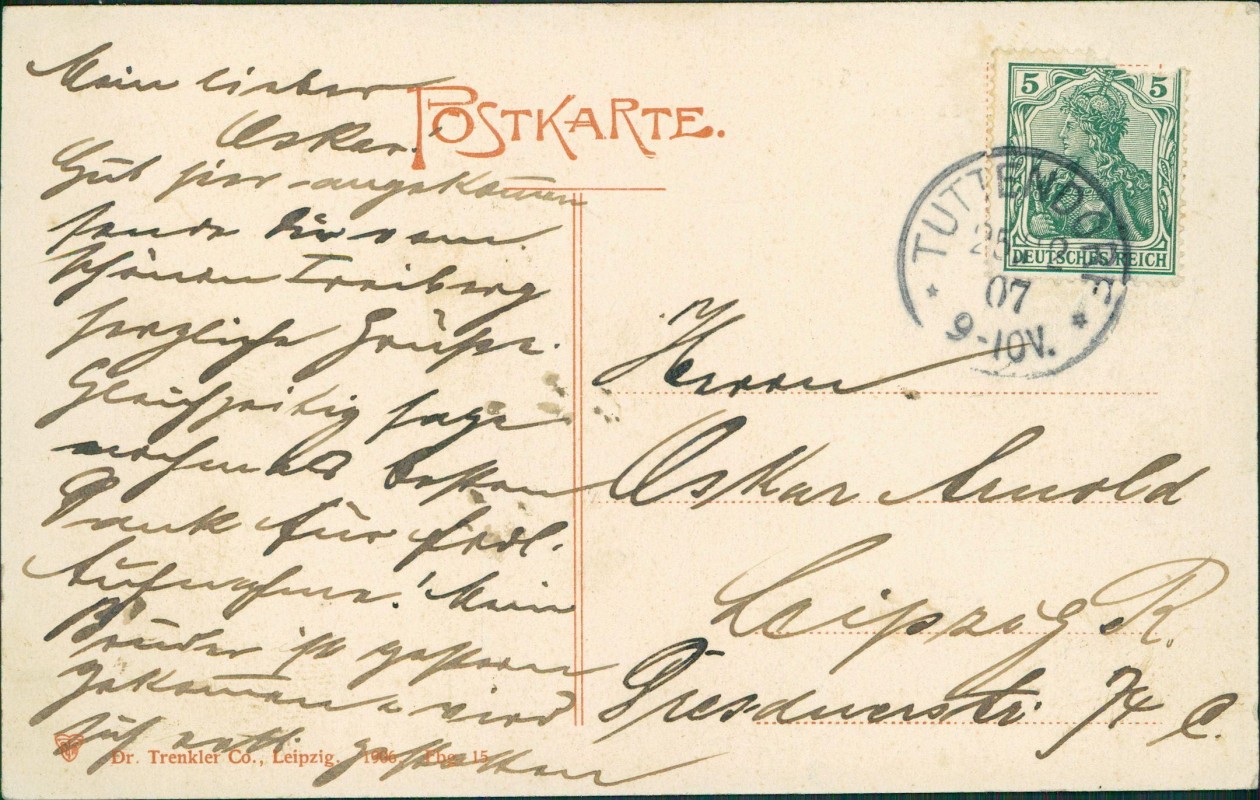 Mein lieber
Oskar!
POSTKARTE.
Gut hier angekommen
sende Dir vom
schönen Freiberg
herzliche Grüße.
Gleichzeitig sage
nochmals besten
Dank für frdl.
Aufnahme. Mein
Bruder ist gestern
gekommen u wird
sich
5 5
DEUTSCHES REICH
TUTTENDORF
25 12
07
9-10V.
Herrn
Oskar Arnold
Leipzig R.
Dresdnerstr. 74 C.
Dr. Trenkler Co., Leipzig. 1906. Fbg. 15